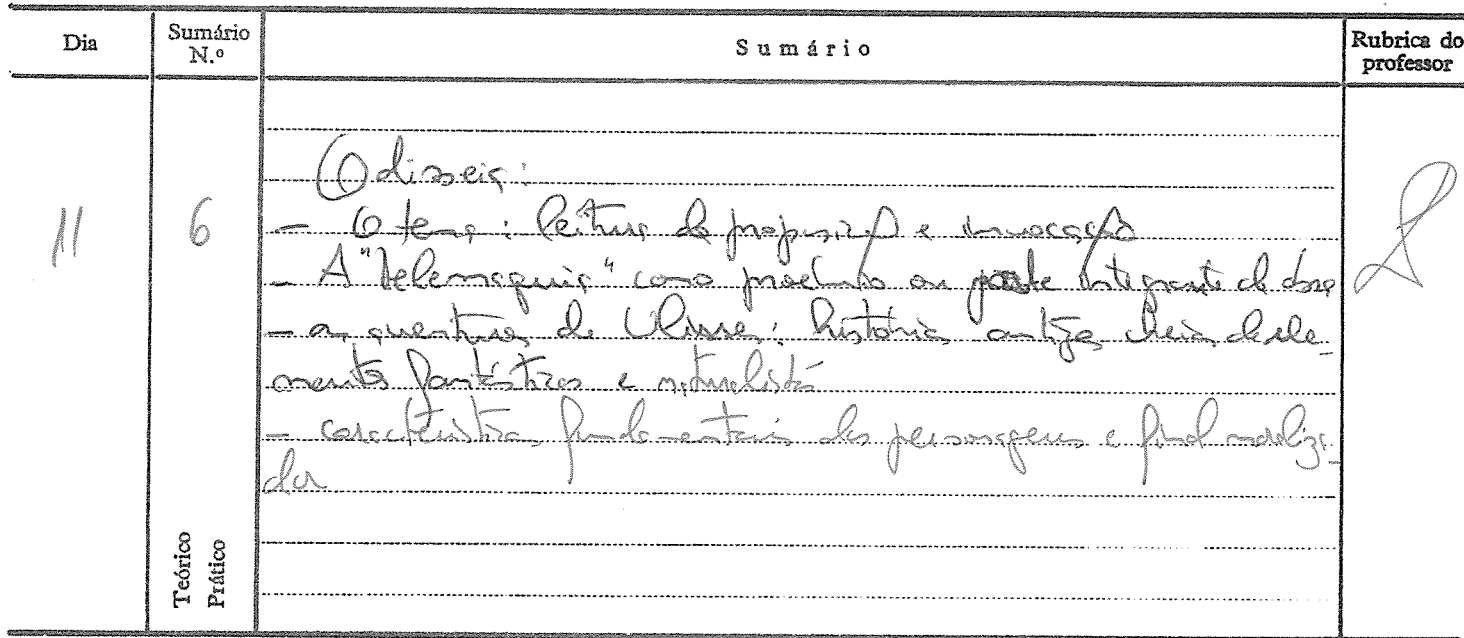 Dia
Sumário N.º
Sumário
Rubrica do professor
11
6
Odisseia:
- O tema: leitura da proposição e invocação
- A "Telemaquia" como proémio ou parte integrante da obra
- as aventuras de Ulisses: história antiga cheia de ele-
mentos fantásticos e naturalistas
- características fundamentais das personagens e final moraliza-
dor
Teórico
Prático